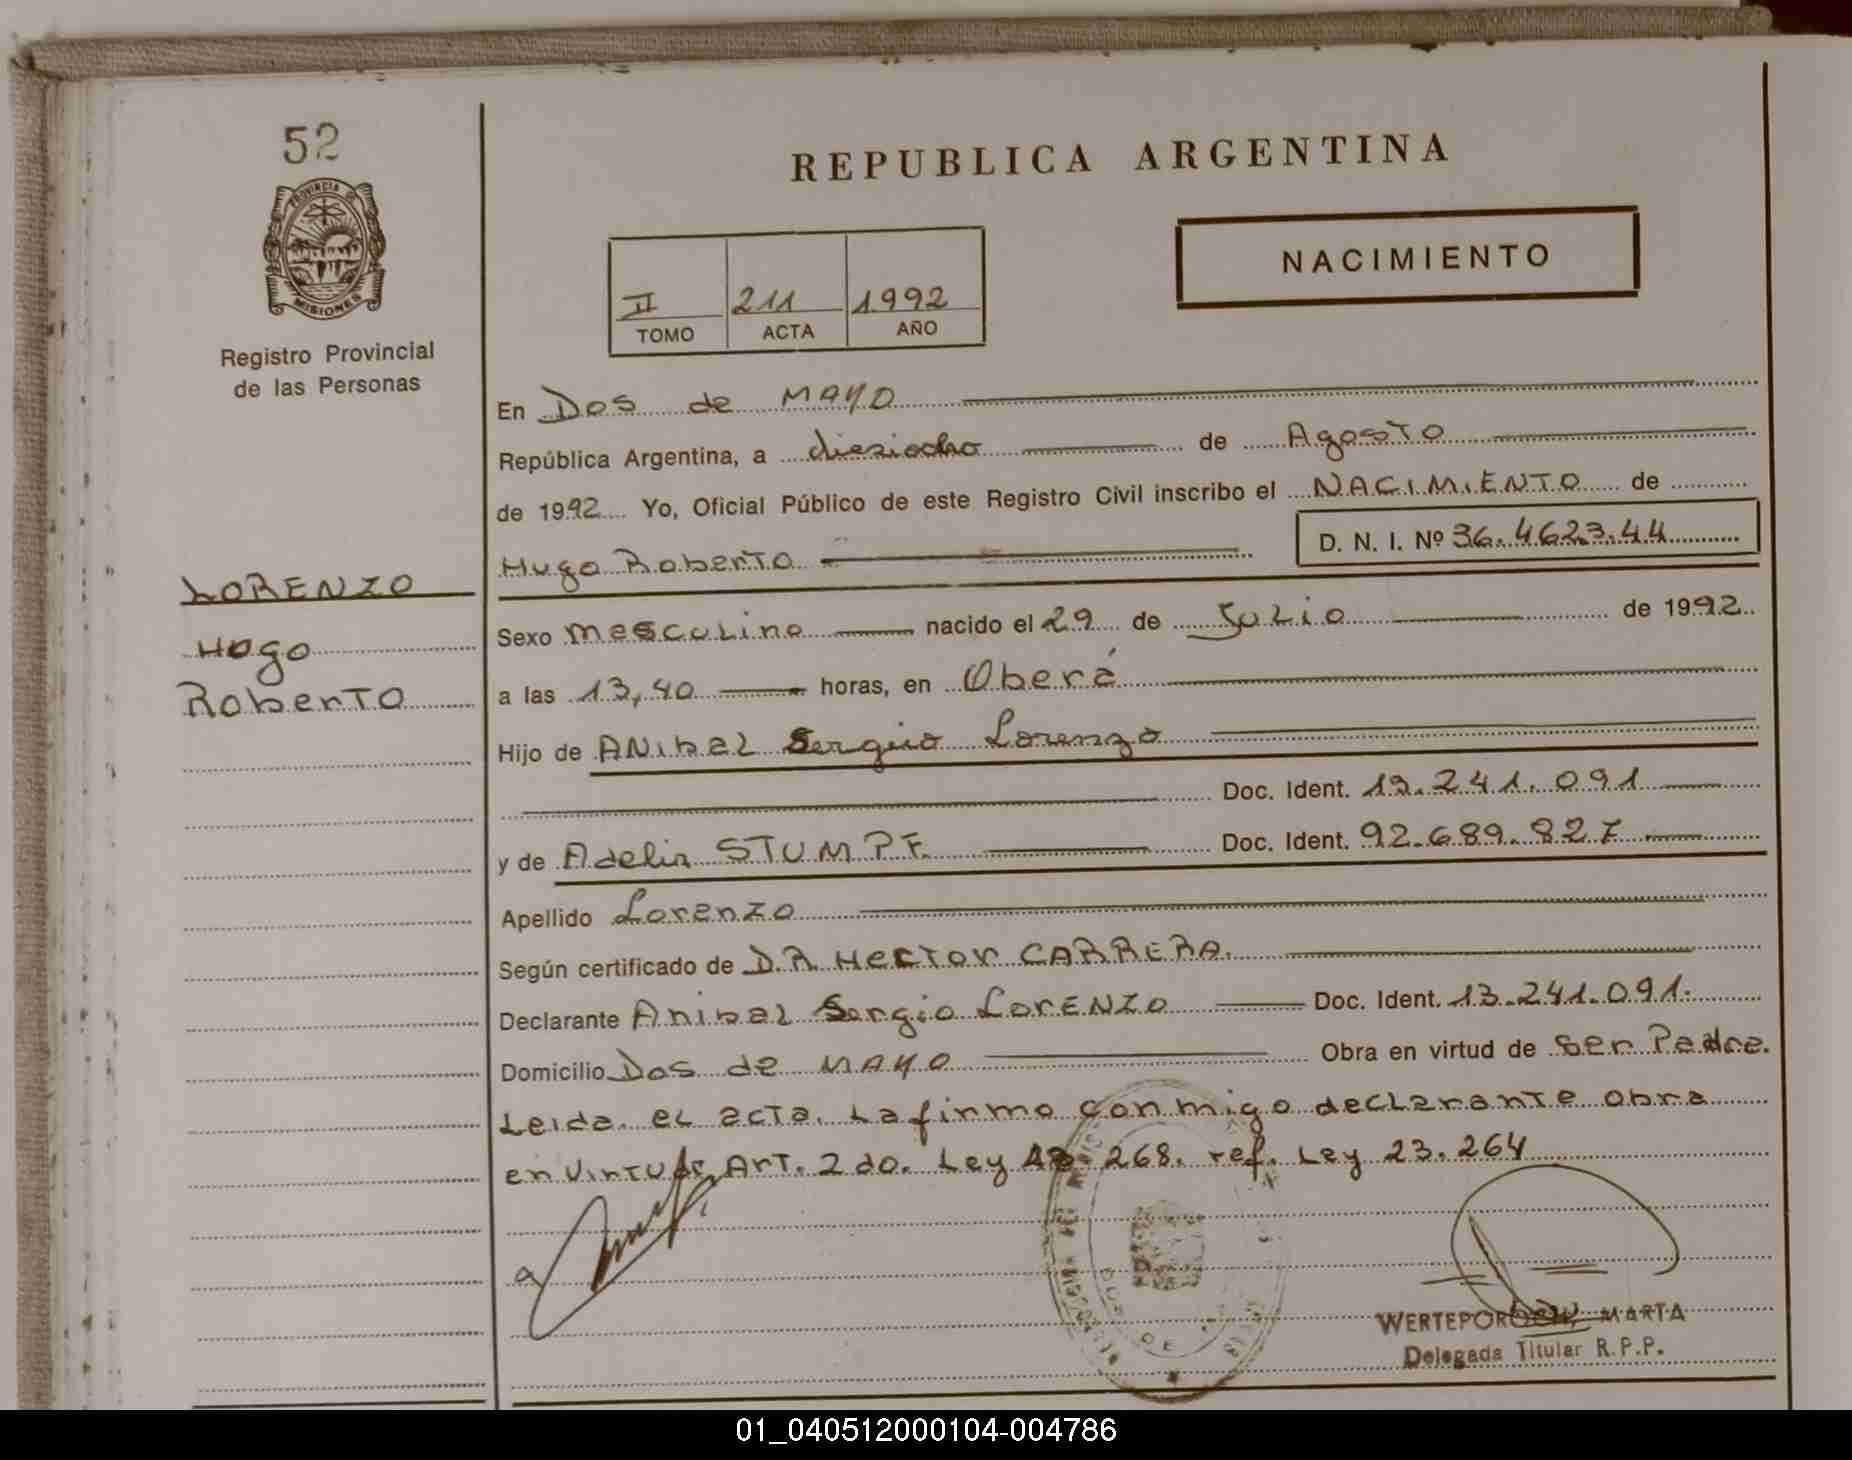 52
PROVINCIA DE
MISIONES
Registro Provincial
de las Personas
LORENZO
Hugo
Roberto
REPUBLICA ARGENTINA
NACIMIENTO
II 211 1992
TOMO ACTA AÑO
En Dos de MAYO
República Argentina, a dieziocho de Agosto
de 1992 Yo, Oficial Público de este Registro Civil inscribo el NACIMIENTO de
Hugo Roberto D. N. I. Nº 36.4623.44
Sexo mesculino nacido el 29 de Julio de 1992
a las 13,40 horas, en Oberá
Hijo de ANibal Sergio Lorenzo
Doc. Ident. 13.241.091
y de Adelia STUMPF. Doc. Ident. 92.689.827
Apellido Lorenzo
Según certificado de DR Hector CARRERA.
Declarante Anibal Sergio LorENZO Doc. Ident. 13.241.091.
Domicilio Dos de MAYO Obra en virtud de ser Padre.
Leida el acta. La firmo conmigo declarante obra
en Virtud Art. 2do. Ley 18.268. ref. Ley 23.264
WERTEPOROCH, MARTA
Delegada Titular R.P.P.
01_040512000104-004786